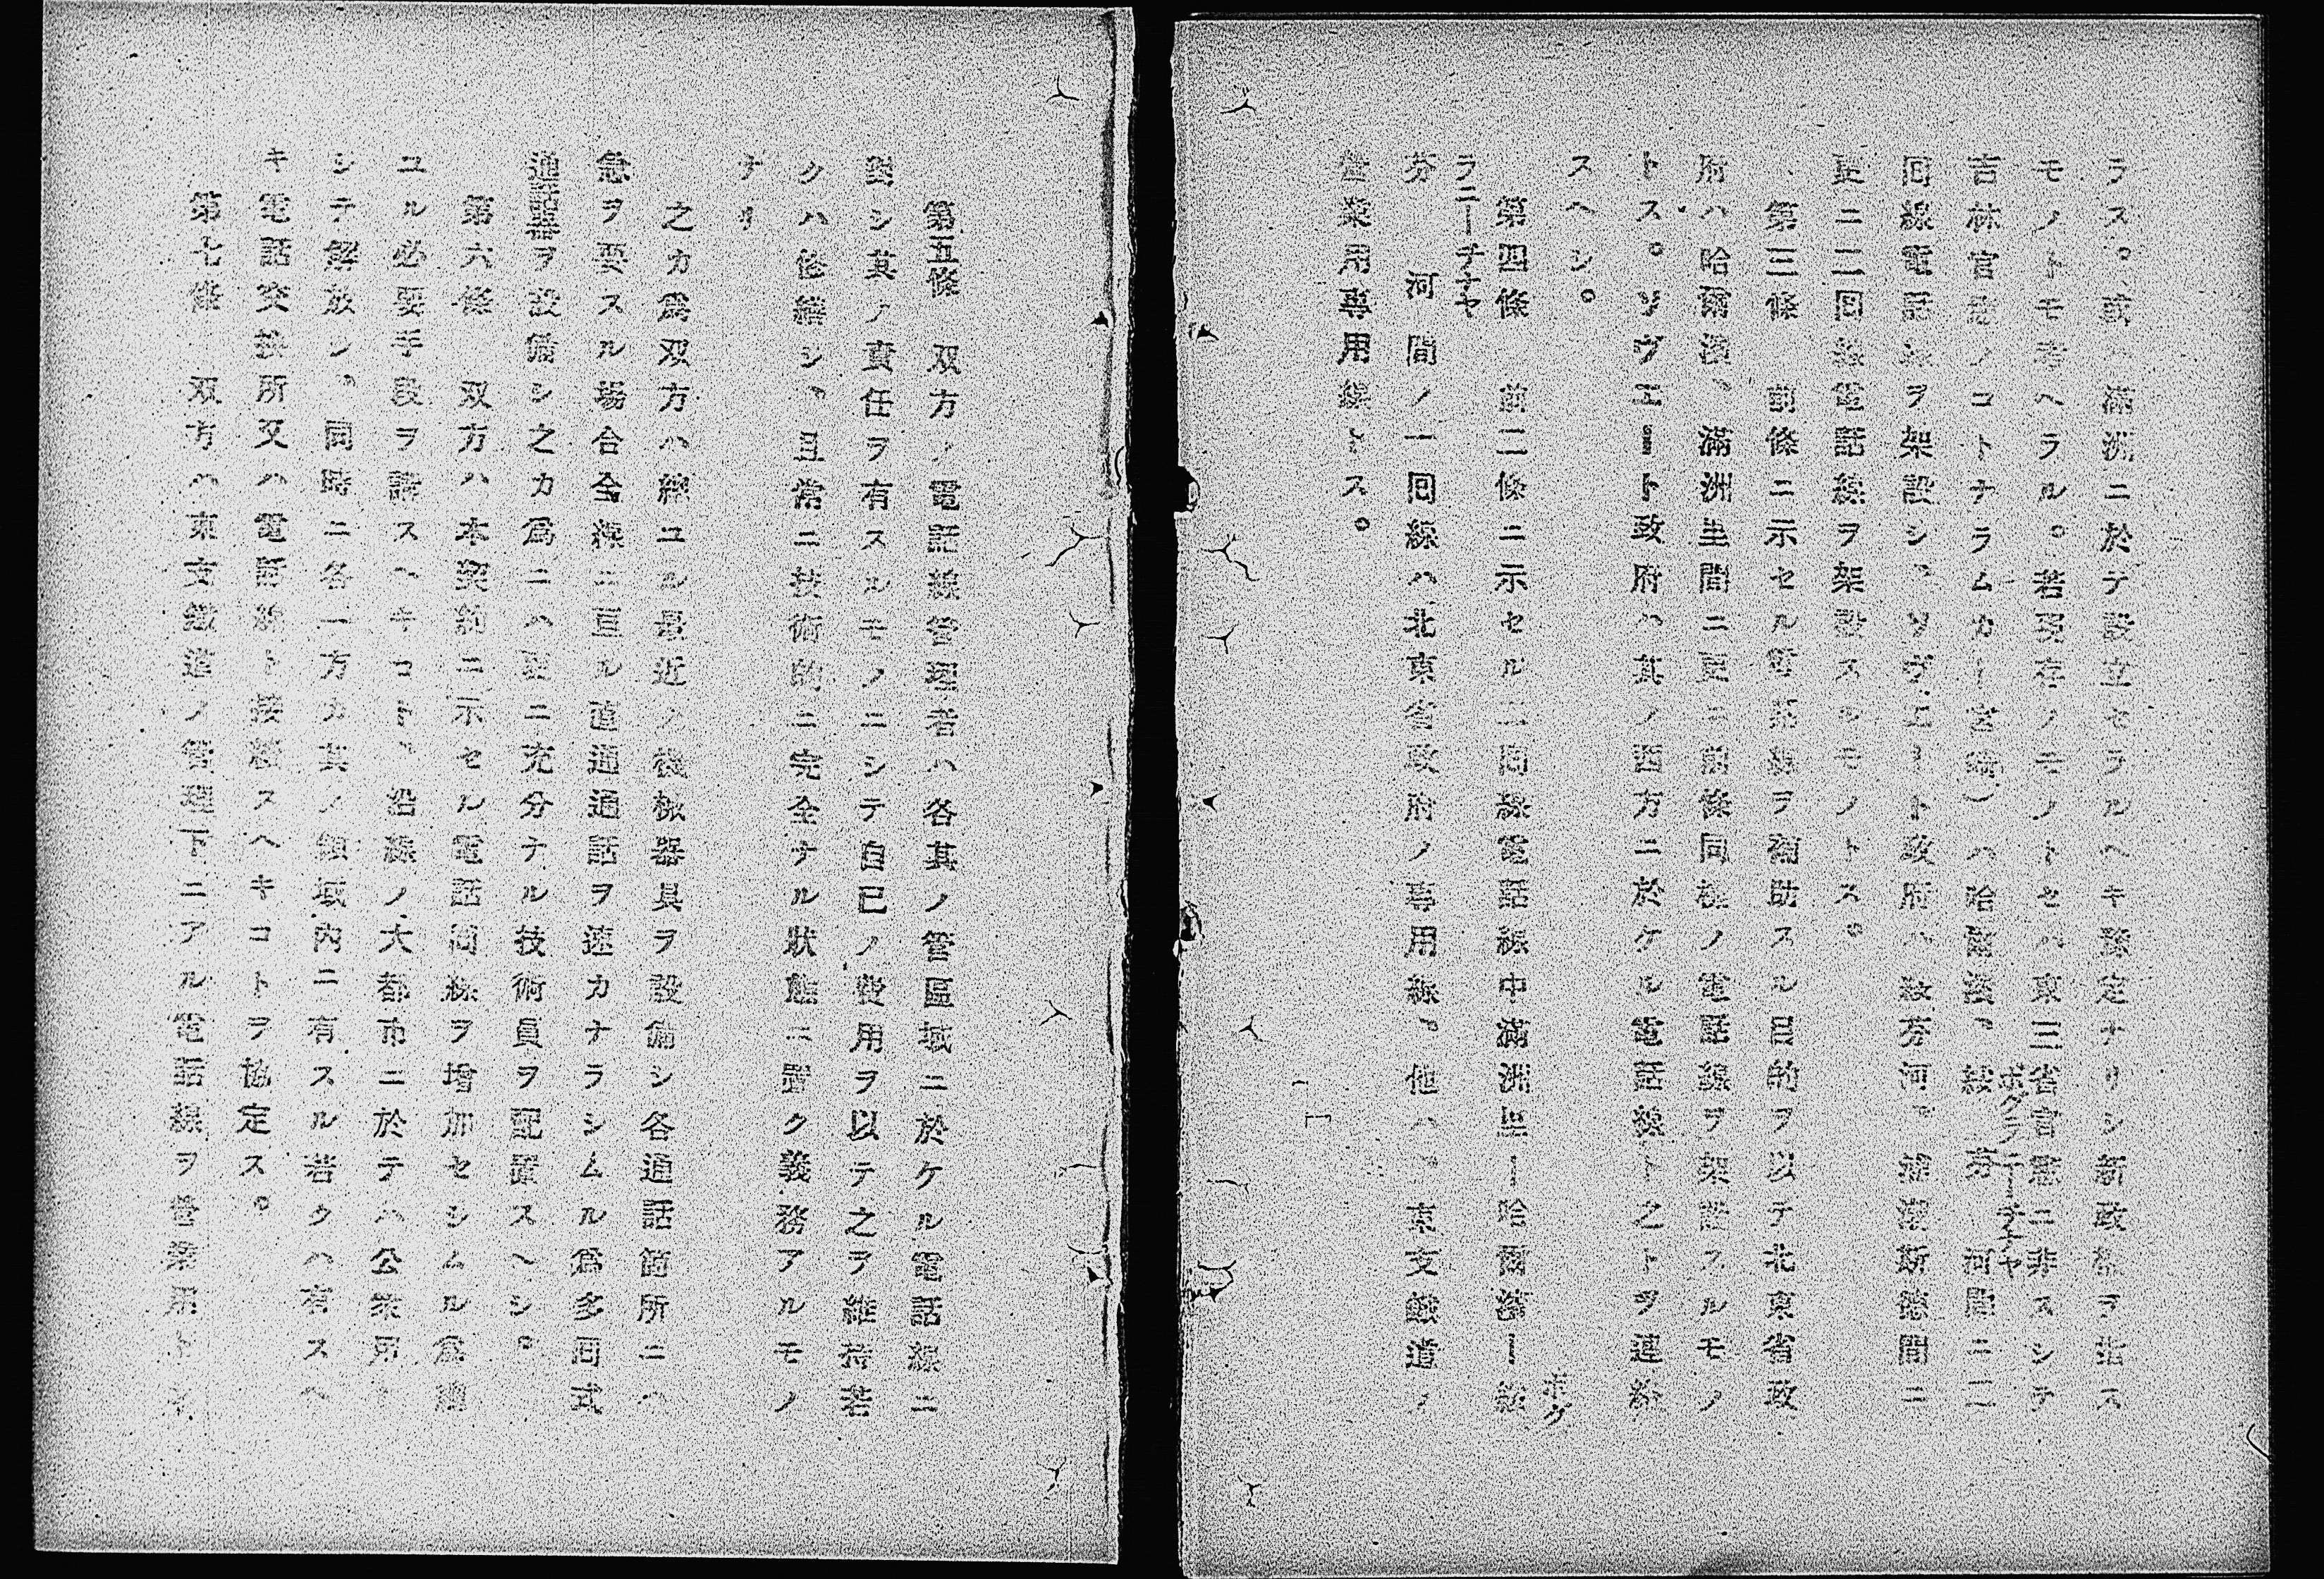 ラス。或ハ滿洲ニ於テ設立セラルヘキ豫定ナリシ新政權ヲ指ス
モノトモ考ヘラル。若現存ノモノトセハ東三省官憲ニ非スシテ
吉林官憲ノコトナラムカ(宮崎)ハ哈爾濱、綏芬河間ニ二
ポグラニーチナヤ
回線電話線ヲ架設シ、ソヴエート政府ハ綏芬河、浦潮斯德間ニ
更ニ二回線電話線ヲ架設スルモノトス。
第三條 前條ニ示セル電話線ヲ補助スル目的ヲ以テ北東省政
府ハ哈爾濱、滿洲里間ニ更ニ前條同樣ノ電話線ヲ架設スルモノ
トス。ソヴエート政府ハ其ノ西方ニ於ケル電話線ト之トヲ連絡
スヘシ。
第四條 前二條ニ示セル二回線電話線中滿洲里ー哈爾濱ー綏
ポグ
ラニーチナヤ
芬河間ノ一回線ハ北東省政府ノ專用線、他ハ、東支鐵道ノ
營業用專用線トス。
第五條 双方ノ電話線管理者ハ各其ノ管區域ニ於ケル電話線ニ
對シ其ノ責任ヲ有スルモノニシテ自己ノ費用ヲ以テ之ヲ維持若
クハ修繕シ、且常ニ技術的ニ完全ナル狀態ニ置ク義務アルモノ
ナリ
之カ爲双方ハ總ユル最近ノ機械器具ヲ設備シ各通話箇所ニハ
急ヲ要スル場合全線ニ亘ル直通通話ヲ速カナラシムル爲多回式
通話器ヲ設備シ之カ爲ニハ更ニ充分ナル技術員ヲ配置スヘシ。
第六條 双方ハ本契約ニ示セル電話回線ヲ增加セシムル爲總
ユル必要手段ヲ講スヘキコト、沿線ノ大都市ニ於テハ公衆用ト
シテ解放シ、同時ニ各一方カ其ノ領域內ニ有スル若クハ有スヘ
キ電話交換所又ハ電話線ト接續スヘキコトヲ協定ス。
第七條 双方ハ東支鐵道ノ管理下ニアル電話線ヲ營業用トシ